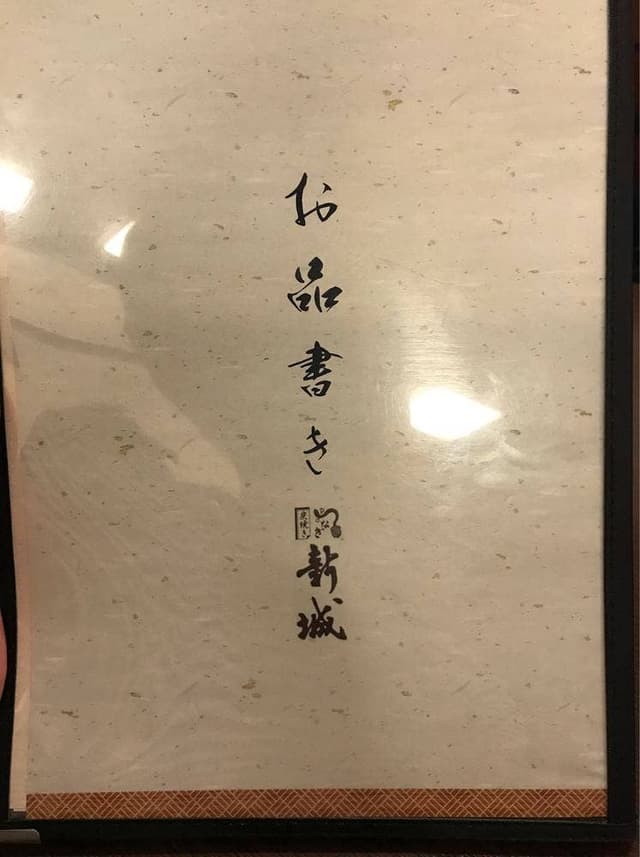 お品書き
炭焼き
うなぎ
新城